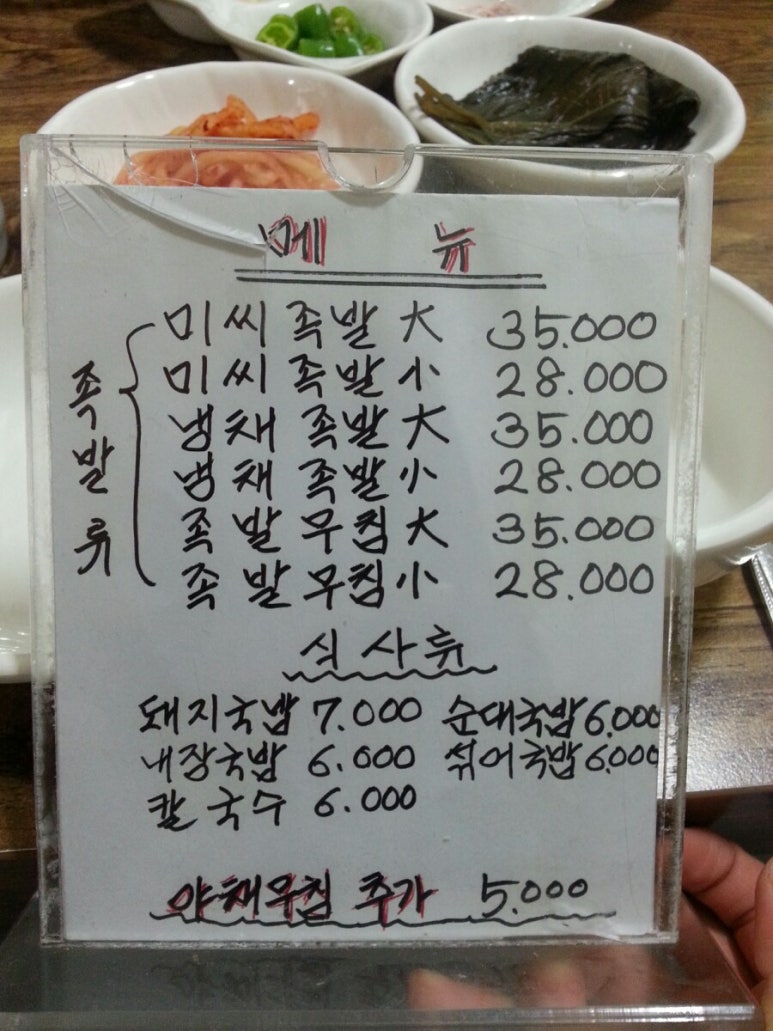 메 뉴
미씨 족발 大 35.000
미씨 족발 小 28.000
냉채 족발 大 35.000
냉채 족발 小 28.000
족발무침 大 35.000
족발무침 小 28.000
족발류
식사류
돼지국밥 7.000 순대국밥 6.000
내장국밥 6.000 섞어국밥 6.000
칼국수 6.000
야채무침 추가 5.000